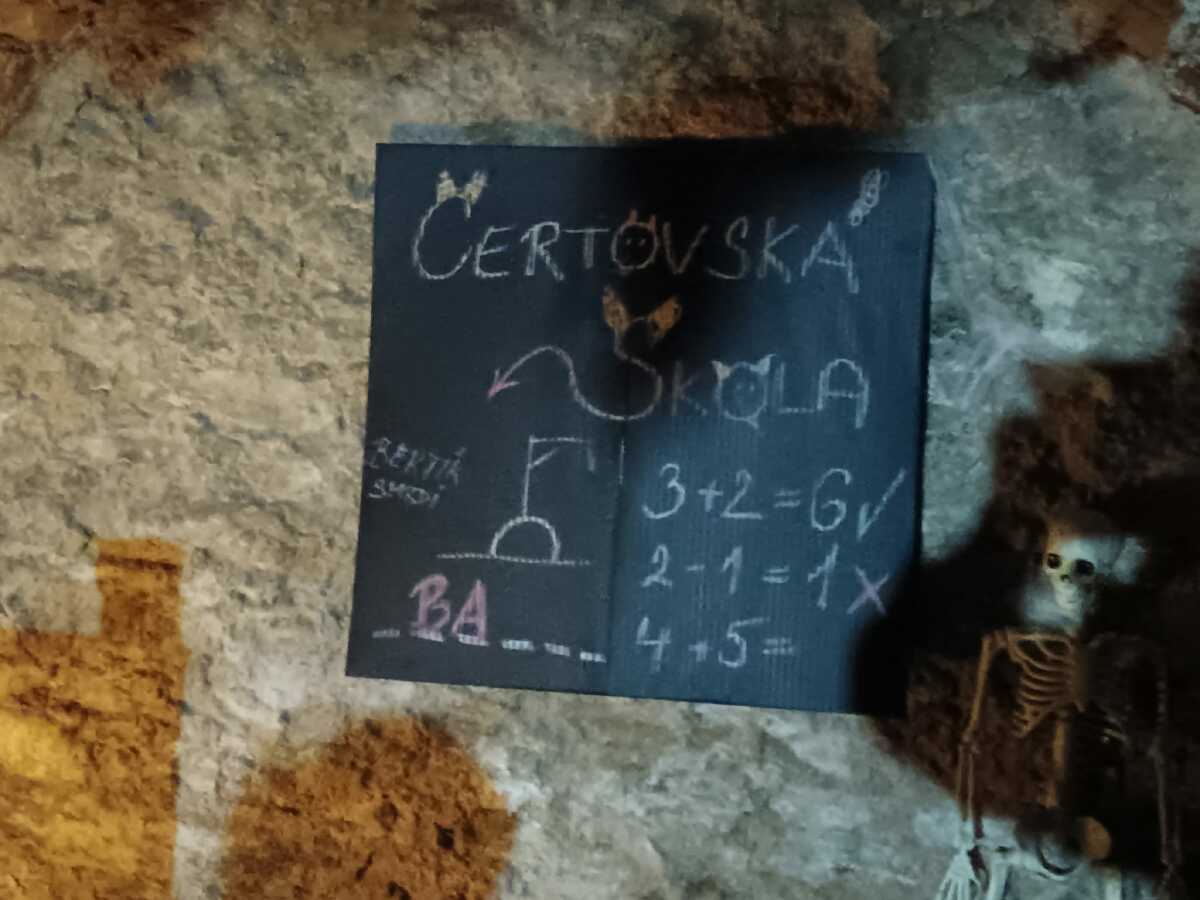 ČERTOVSKÁ
ŠKOLA
BERTÍK
SMRDÍ
3+2=6✓
2-1=1 x
4+5=
_ BA _ _ _